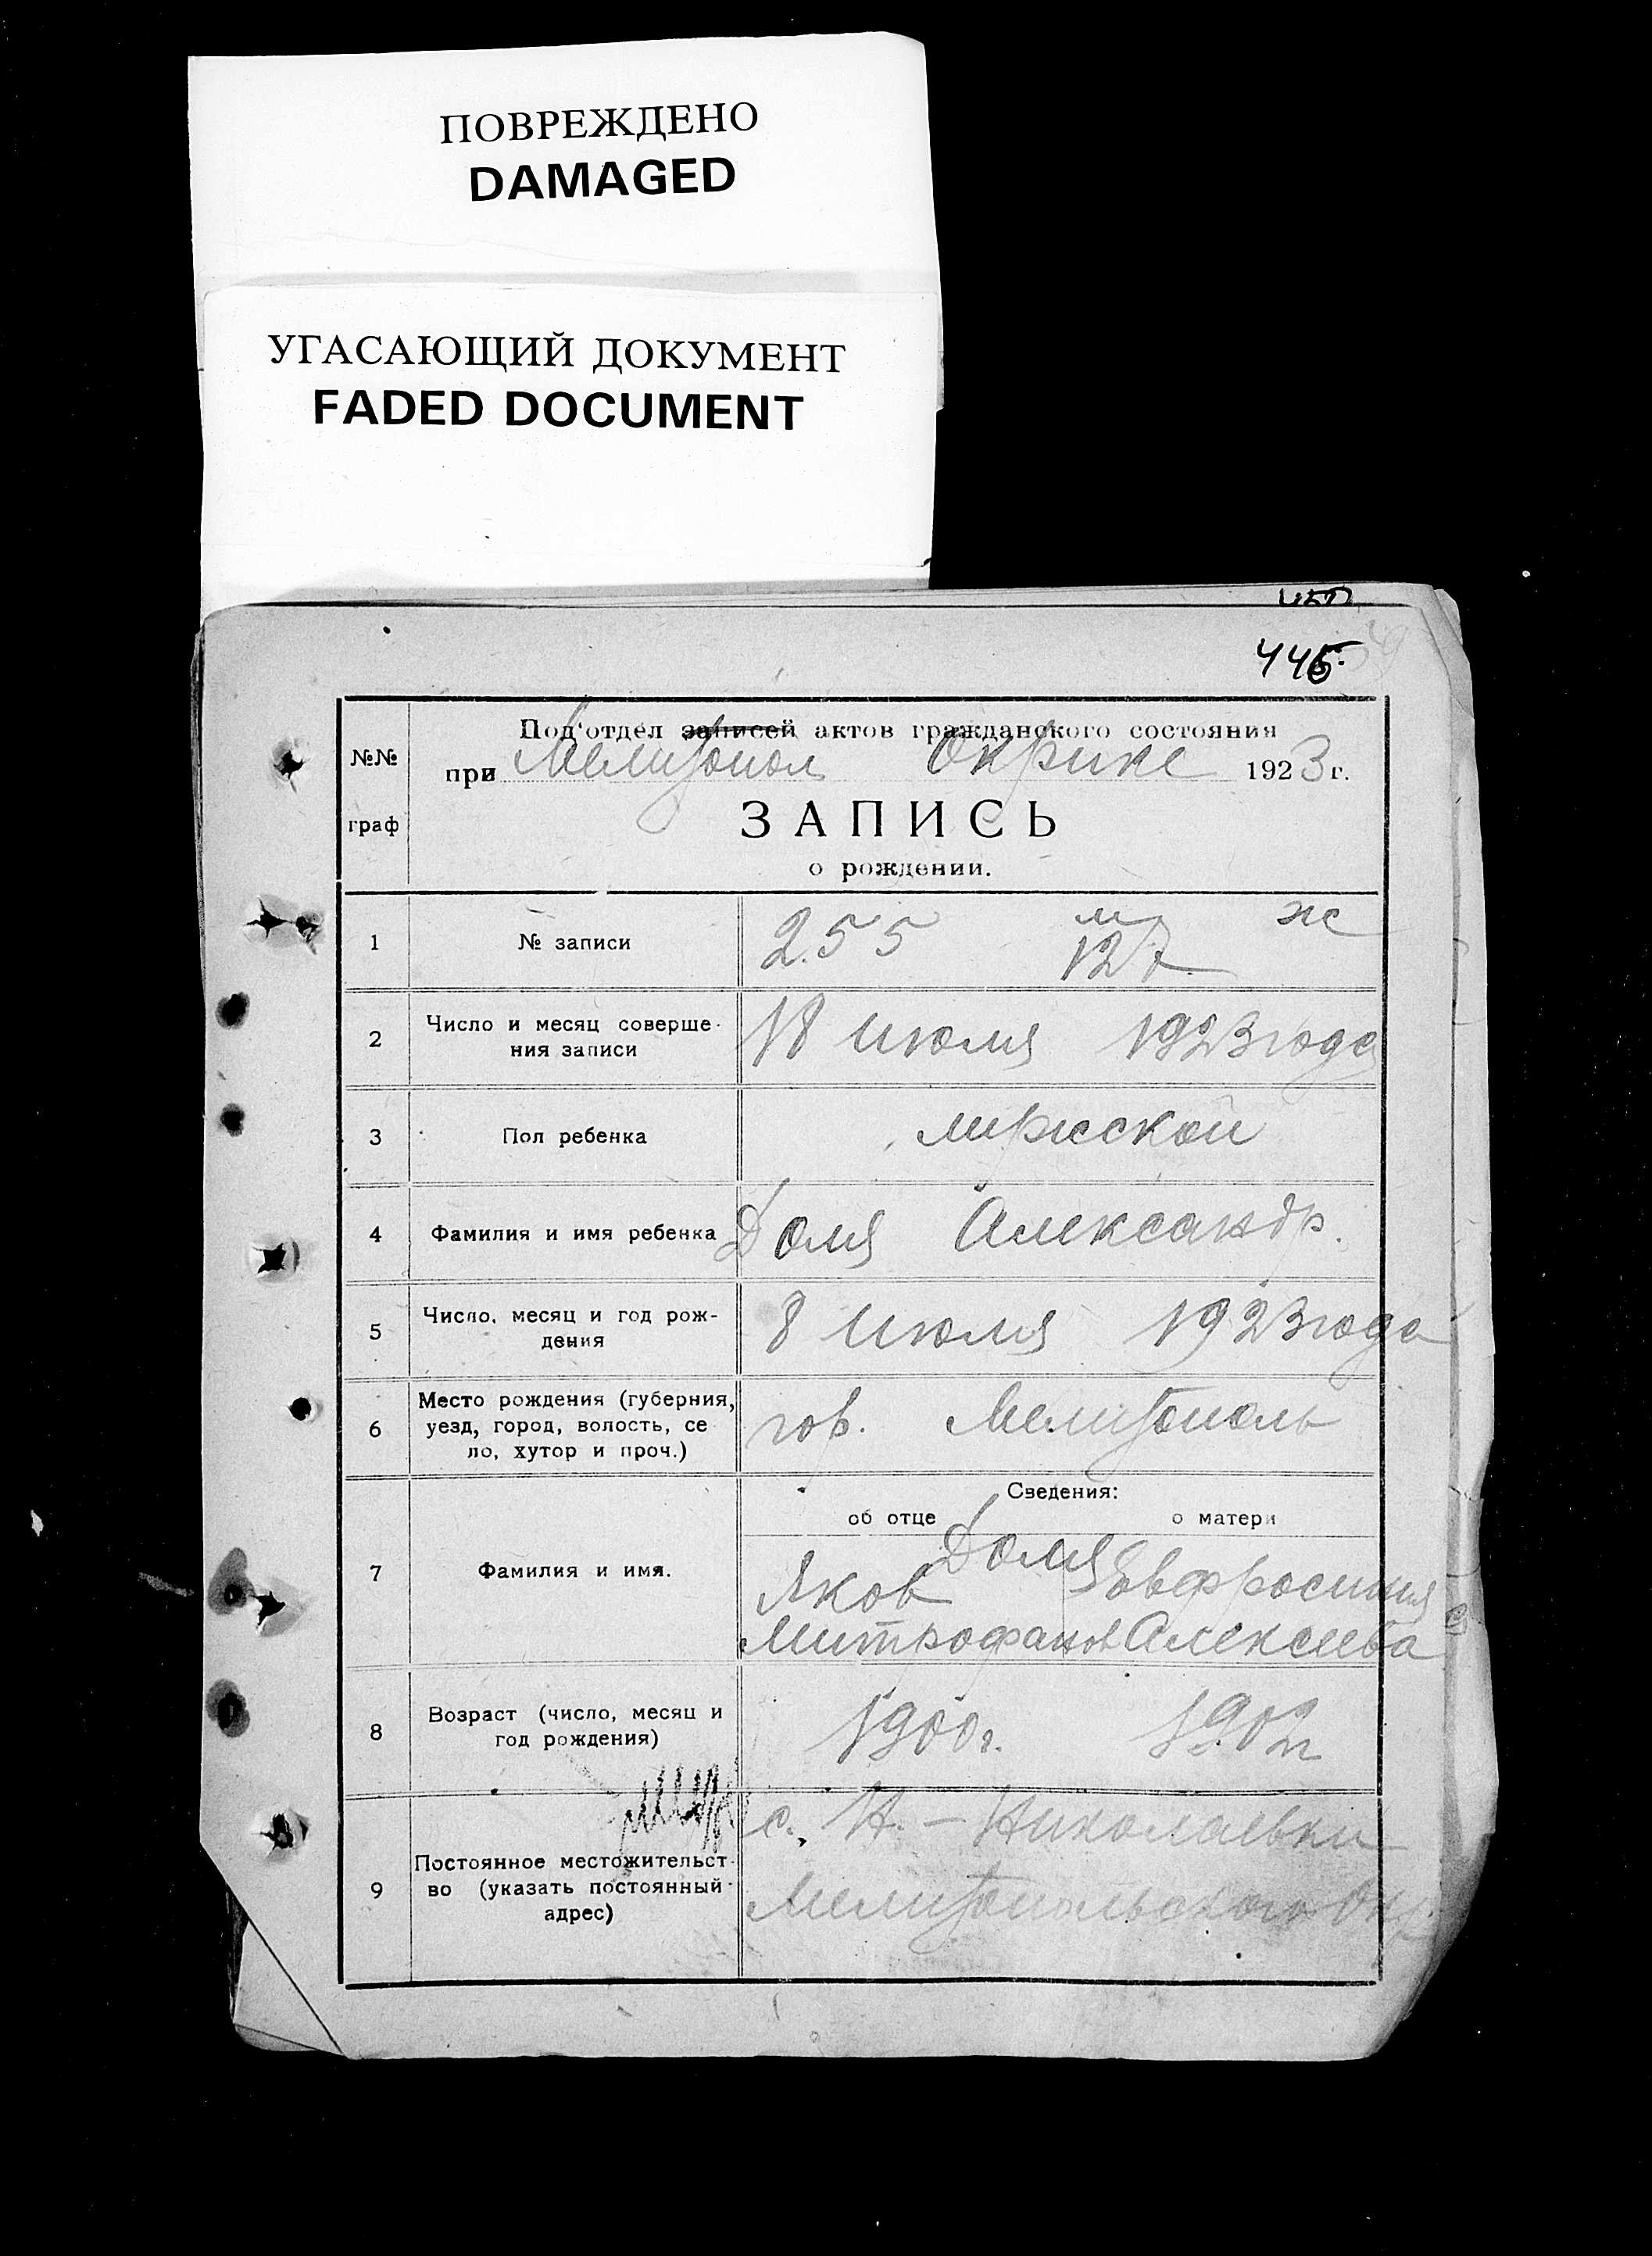 ПОВРЕЖДЕНО
DAMAGED
УГАСАЮЩИЙ ДОКУМЕНТ
FADED DOCUMENT
450
445.
№№ граф
Под'отдел записей актов гражданского состояния
при Мелитопол Окрике 1923 г.
ЗАПИСЬ
о рождении.
1 № записи 255 м 127 ж
2 Число и месяц соверше-
ния записи 18 июля 1923 года
3 Пол ребенка мужской
4 Фамилия и имя ребенка Доля Александр.
5 Число, месяц и год рож-
дения 8 июля 1923 года
6 Место рождения (губерния,
уезд, город, волость, се
ло, хутор и проч.) гор. Мелитополь
Сведения:
об отце о матери
7 Фамилия и имя. Доля
Яков Евфросиния
Митрофанов Алексеева
8 Возраст (число, месяц и
год рождения) 1900 г. 1902 г
9 Постоянное местожительст-
во (указать постоянный
адрес) с. Н.-Николаевки
Мелитопольского Окр.